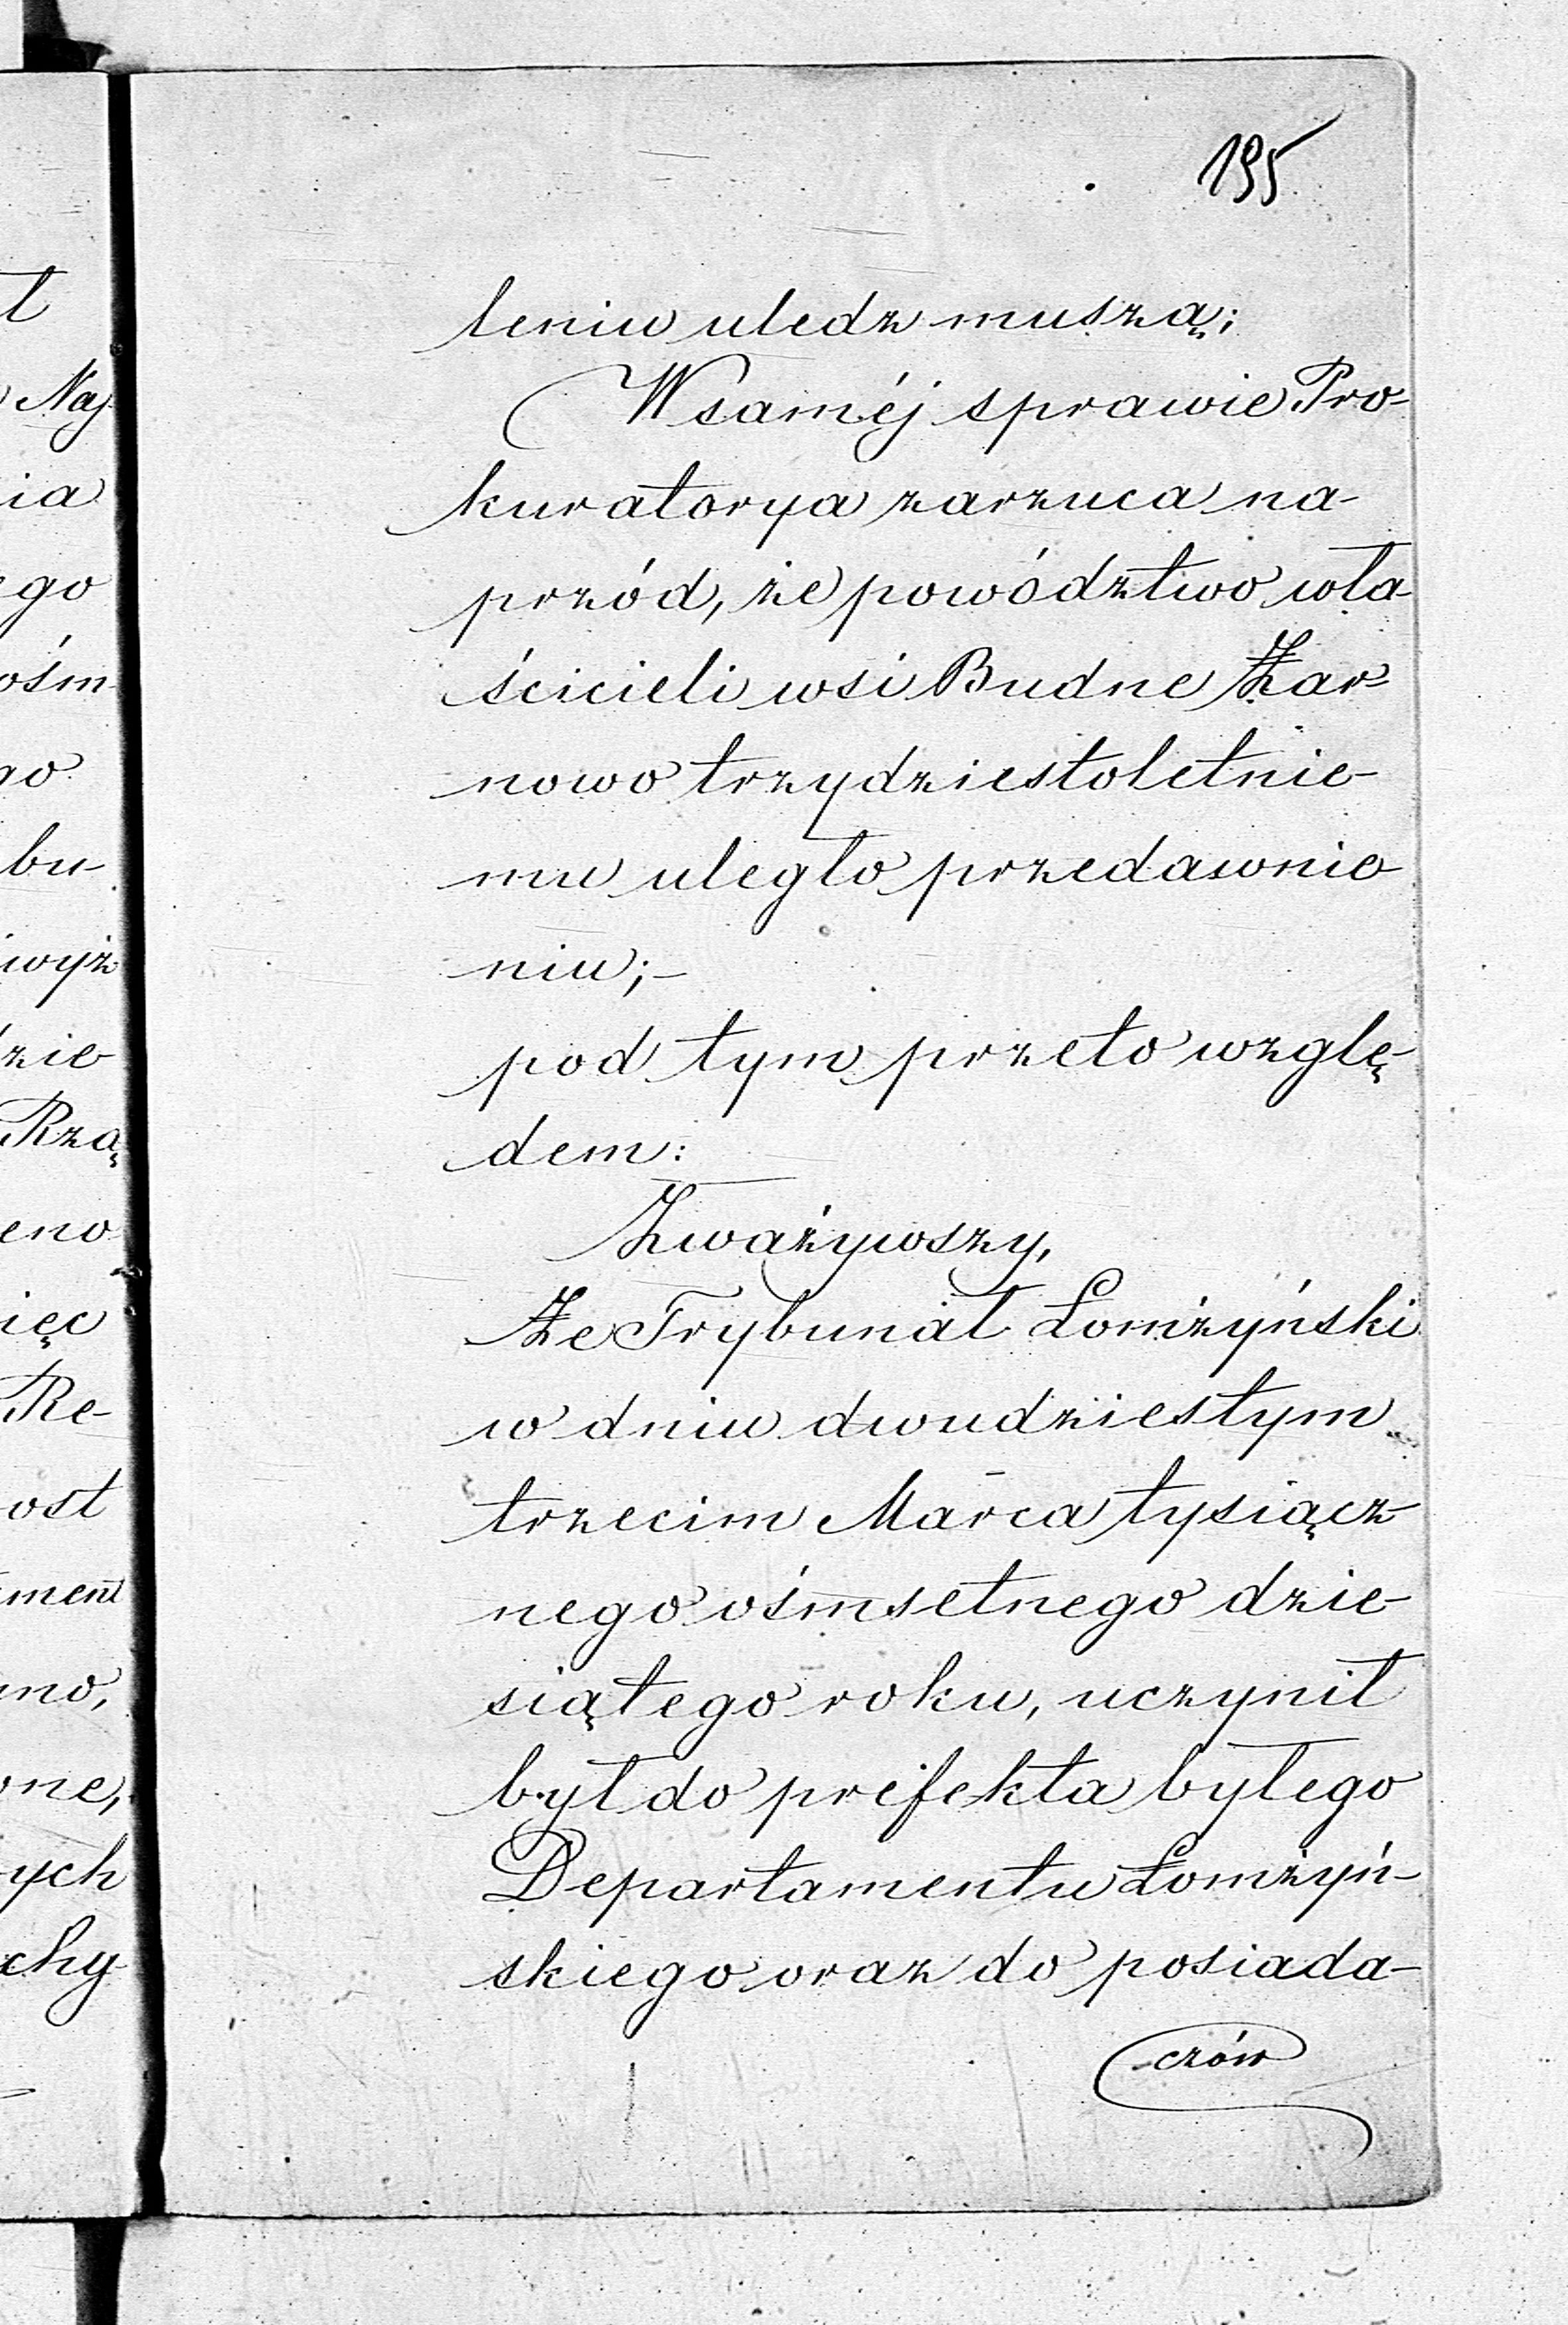 195
leniu uledz muszą;
W saméj sprawie Pro-
kuratorya zarzuca na-
przód, że powództwo wła
ścicieli wsi Budne Żar-
nowo trzydziestoletnie-
mu uległo przedawnie
niu;-
pod tym przeto wzglę-
dem:
Zważywszy,
Że Trybunał Łomżyński
w dniu dwudziestym
trzecim Marca tysiącz-
nego ośmsetnego dzie-
siątego roku, uczynił
był do prefekta byłego
Departamentu Łomżyń-
skiego oraz do posiada-
czów